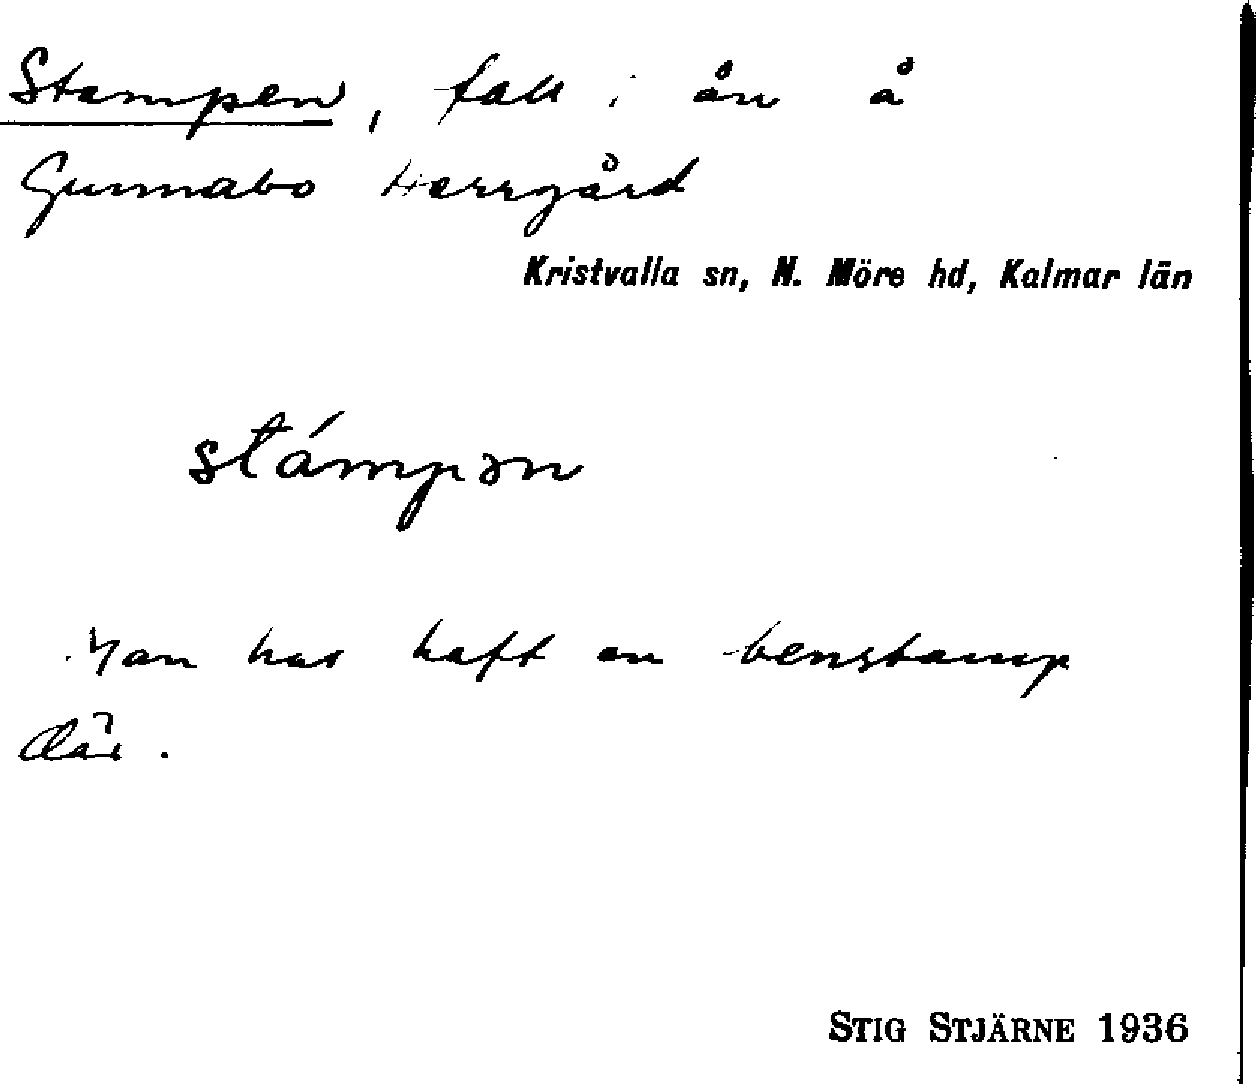 Stampen, fall i ån å
Gunnabo Herrgård
Kristvalla sn, N. Möre hd, Kalmar län
stámpən
Man har haft en benstamp
där.
STIG STJÄRNE 1936